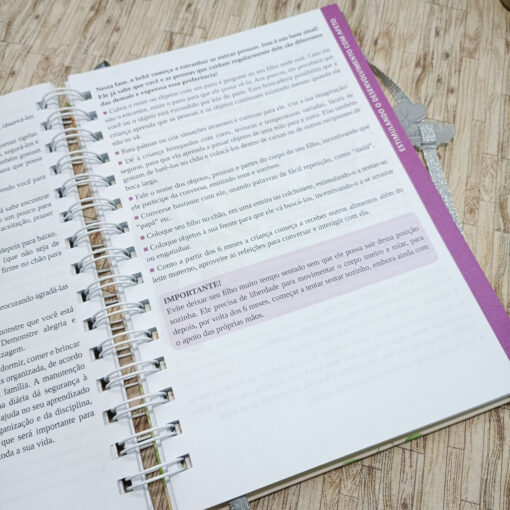 observá-los
ugumas tigelas
, segurá-los e
também gostam
para que possa
endo você para
sabe encontrar
um pouco para
aceitação, prazer
depois para baixo,
(que não seja de
firme no chão para
procurando agradá-las
monstre que você está
Demonstre alegria e
izagem.
dormir, comer e brincar
is organizada, de acordo
família. A manutenção
na diária dá segurança à
ajuda no seu aprendizado
ganização e da disciplina,
que será importante para
toda a sua vida.
Nesta fase, o bebê começa a estranhar as outras pessoas. Isso é um bom sinal!
Ele já sabe que você e as pessoas que cuidam regularmente dele são diferentes
das demais e expressa essa preferência!
Cubra o rosto ou objetos com um pano e pergunte ao seu filho onde está. Caso ele
não o encontre, retire o pano para que ele possa vê-lo.
você ou o objeto está escondido por trás do pano. Essa brincadeira possibilita que a
criança aprenda que as pessoas e os objetos continuam existindo mesmo quando ele
não os vê.
Bata palmas ou crie situações atraentes e curiosas para ele. Use a sua imaginação!
Dê à criança brinquedos com cores, texturas e espessuras variadas, fáceis de
segurar, para que ela aprenda a passar objetos de uma mão para a outra. Eles também
gostam de batê-los no chão e colocá-los dentro de caixas ou de outros recipientes de
boca larga.
Fale o nome dos objetos, pessoas e partes do corpo do seu filho, incentivando que
ele participe da conversa, emitindo sons e sorrisos.
Converse bastante com ele, usando palavras de fácil repetição, como "dadá",
"papá" etc.
Coloque seu filho no chão, em uma esteira ou colchonete, estimulando-o a sentar-se.
Coloque objetos à sua frente para que ele vá buscá-los, incentivando-o a se arrastar
ou engatinhar.
Como a partir dos 6 meses a criança começa a receber outros alimentos além do
leite materno, aproveite as refeições para conversar e interagir com ela.
IMPORTANTE!
Evite deixar seu filho muito tempo sentado sem que ele possa sair dessa posição
sozinha. Ele precisa de liberdade para movimentar o corpo inteiro e rolar, para
depois, por volta dos 6 meses, começar a tentar sentar sozinho, embora ainda com
o apoio das próprias mãos.
ESTIMULANDO O DESENVOLVIMENTO COM AFETO